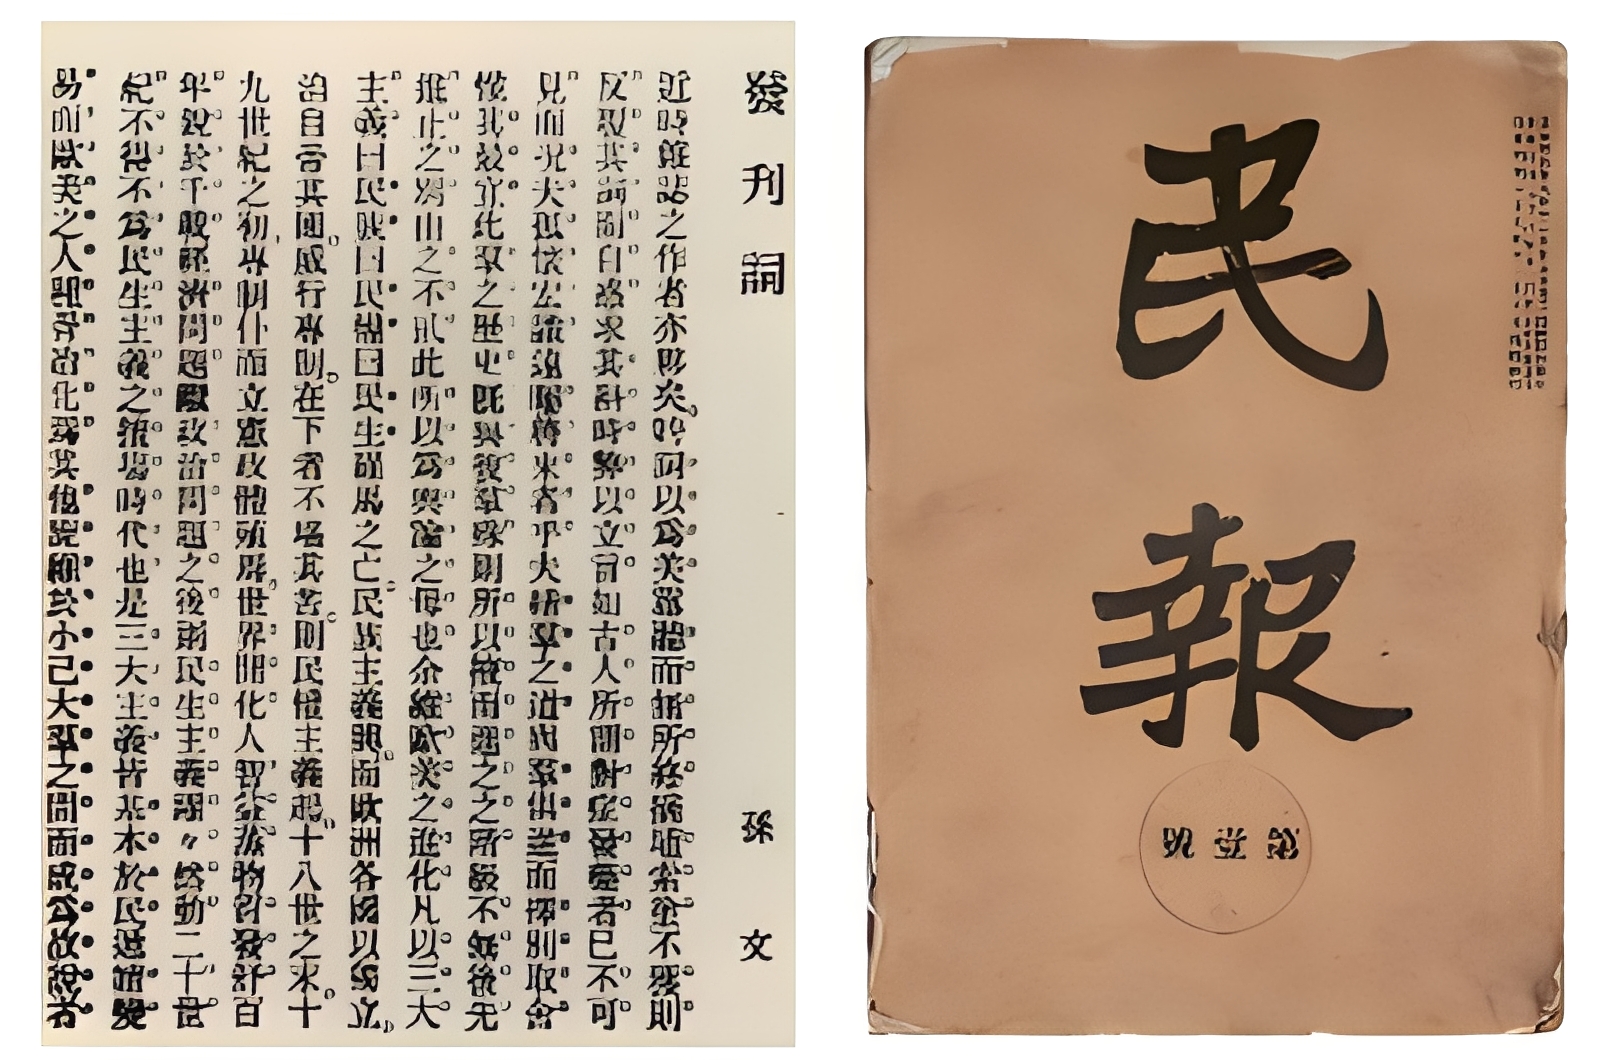 發刊詞 孫文
近時雜誌之作者亦夥矣。姱詞以為美囂聽而無所終摘埴索塗不獲則
反覆其詞而自惑求其斟時弊以立言如古人所謂對症發藥者已不可
見而況夫孤懷宏識遠矚將來者乎夫繕群之道與群俱進而擇別取舍
惟其最宜此群之歷史既與彼群殊則所以掖而進之之階級不無後先
進止之別由之不貳此所以為輿論之母也余維歐美之進化凡以三大
主義曰民族曰民權曰民生羅馬之亡民族主義興。而歐洲各國以獨立。
洎自帝其國。威行專制。在下者不堪其苦。則民權主義起。十八世紀之末。十
九世紀之初專制仆而立憲政體殖焉。世界開化人智益蒸物質發舒百
年銳於千載經濟問題繼政治問題之後則民生主義躍々然動二十世
紀不得不為民生主義之擅場時代也是三大主義皆基本於民遞嬗變
易而歐美之人種胥冶化焉其他旋維於小己大群之間而成為故說者
民報
號壹第